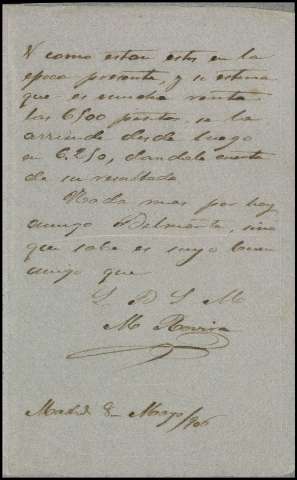 Y como estan estos en la
epoca presente, y se estima
que es mucha renta
las 6500 pesetas, se ha
arriende desde luego
en 6.250, dandole cuenta
de su resultado
Nada mas por hoy
amigo Belmonte, sino
que sabe es suyo buen
amigo que
L B S M
M Rovira
Madrid 8 Marzo/906